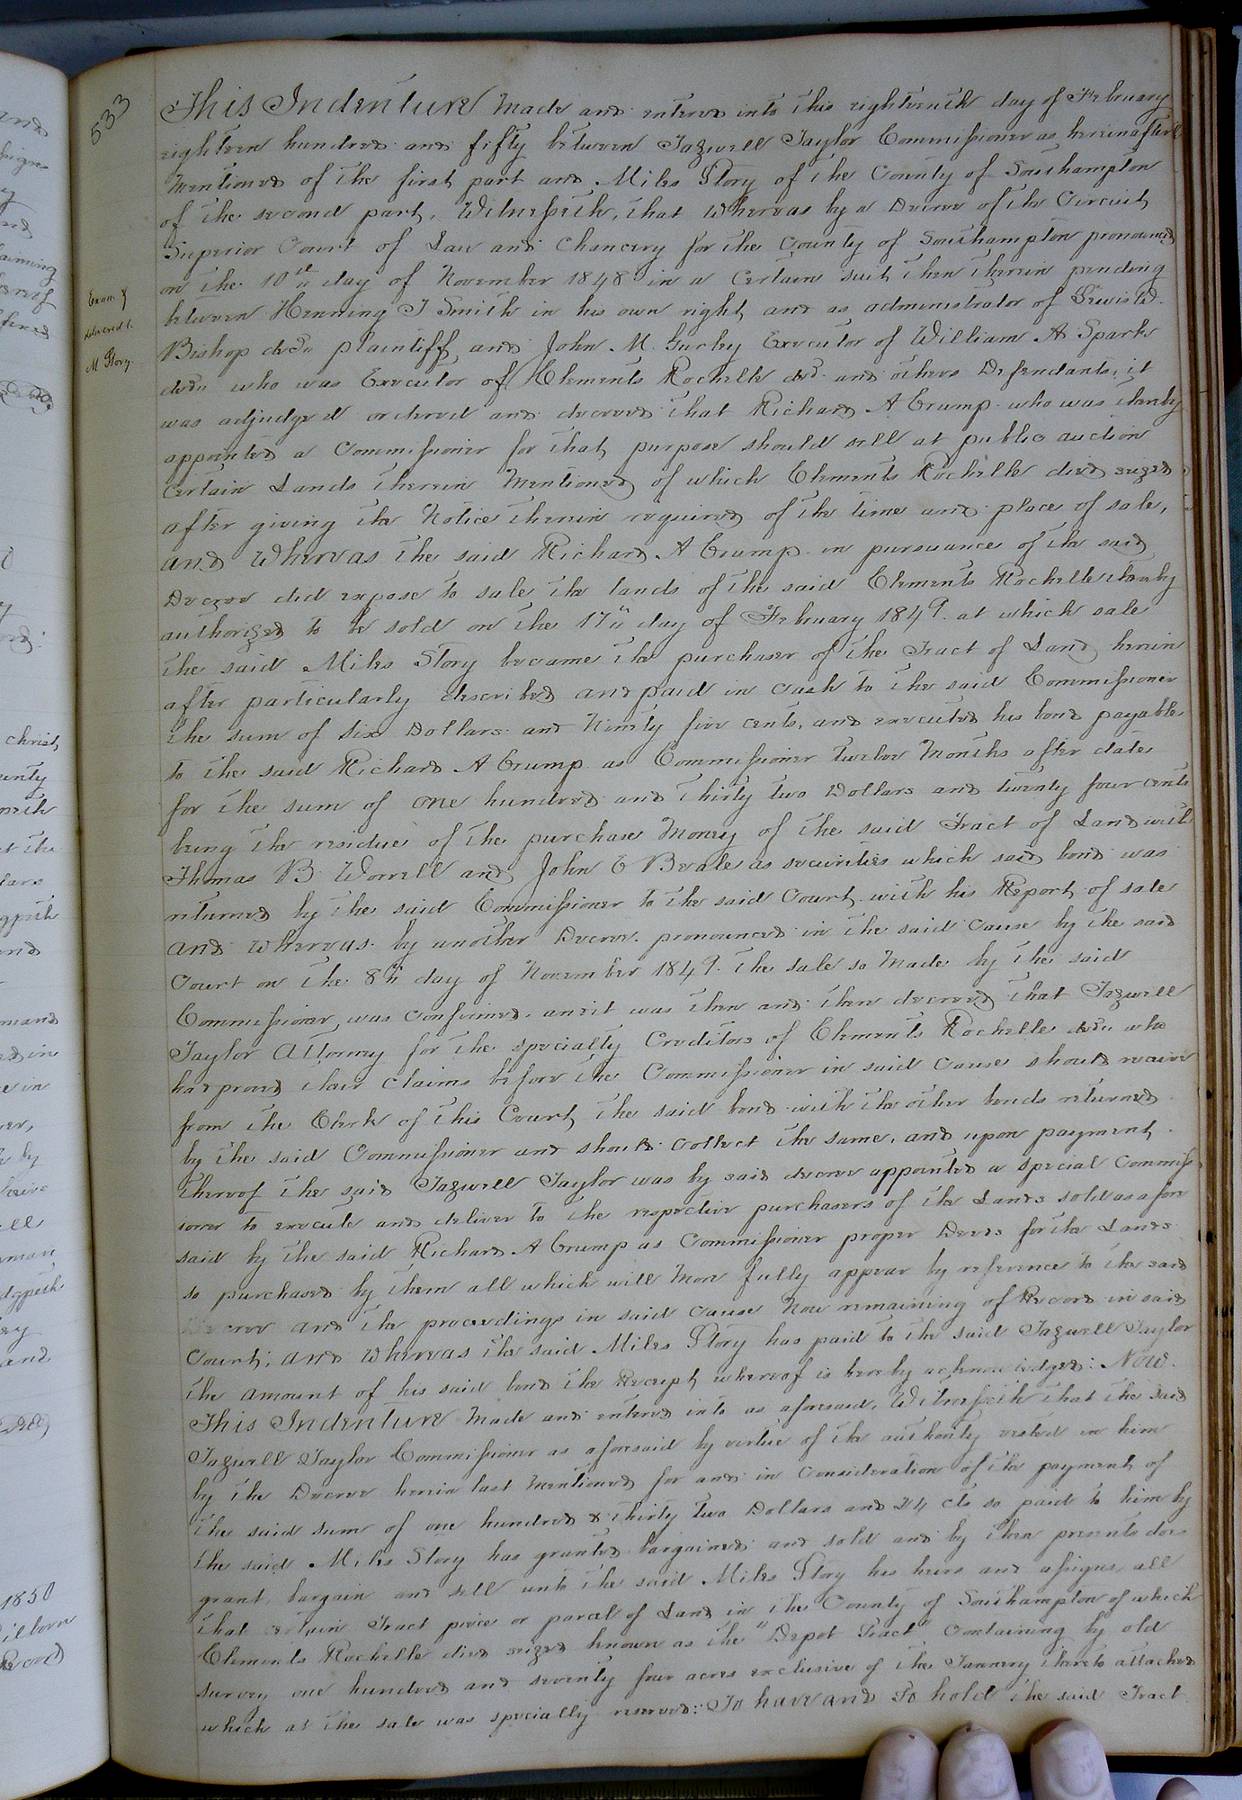 533
This Indenture Made and entered into this eighteenth day of February
eighteen hundred and fifty between Tazwell Taylor Commissioner as hereinafter
Mentioned of the first part and Miles Story of the County of Southampton
of the second part. Witnesseth, that Whereas by a Decree of the Circuit
Superior Court of Law and Chancery for the County of Southampton pronounced
on the 10th day of November 1848 in a Certain suit then therein pending
between Henning T Smith in his own right and as administrator of Lewis W.
Bishop decd. plaintiff, and John M. Gurley Executor of William A Spark
decd. who was Executor of Clements Rochelle decd. and others Defendants, it
was adjudged ordered and decreed that Richard A Crump who was thereby
appointed a Commissioner for that purpose should sell at public auction
Certain Lands therein Mentioned of which Clements Rochelle died seized
after giving the Notice therein required of the time and place of sale,
and Whereas the said Richard A Crump in pursuance of the said
Decree did expose to sale the lands of the said Clements Rochelle thereby
authorized to be sold on the 17th day of February 1849. at which sale
the said Miles Story became the purchaser of the Tract of Land herein
after particularly described and paid in cash to the said Commissioner
the sum of six Dollars and Ninety five cents, and executed his bond payable
to the said Richard A Crump as Commissioner twelve Months after date
for the sum of one hundred and thirty two Dollars and twenty four cents
being the residue of the purchase Money of the said Tract of Land with
Thomas B Worrell and John E Beale as securities which said bond was
returned by the said Commissioner to the said Court with his Report of sale
and whereas by another Decree pronounced in the said Cause by the said
Court on the 8th day of November 1849. the sale so Made by the said
Commissioner, was Confirmed. and it was then and there decreed that Tazwell
Taylor Attorney for the specialty Creditors of Clements Rochelle decd. who
had proved their claims before the Commissioner in said Cause should receive
from the Clerk of this Court the said bond with the other bonds returned
by the said Commissioner and should collect the same, and upon payment
thereof the said Tazwell Taylor was by said decree appointed a special Commiss
ioner to execute and deliver to the respective purchasers of the Lands sold as afore
said by the said Richard A Crump as Commissioner proper Deeds for the Lands
so purchased by them all which will More fully appear by reference to the said
Decree and the proceedings in said Cause Now remaining of Record in said
Court; and whereas the said Miles Story has paid to the said Tazwell Taylor
the amount of his said bond the Receipt whereof is hereby acknowledged: Now
This Indenture Made and entered into as aforesaid, Witnesseth that the said
Tazwell Taylor Commissioner as aforesaid by virtue of the authority vested in him
by the Decree herein last Mentioned for and in Consideration of the payment of
the said sum of one hundred & thirty two Dollars and 24 cts so paid to him by
the said Miles Story has granted bargained and sold and by these presents does
grant, bargain and sell unto the said Miles Story his heirs and assigns all
that certain Tract piece or parcel of Land in the County of Southampton of which
Clements Rochelle died seized known as the "Depot Tract" Containing by old
survey one hundred and seventy four acres exclusive of the Tannery thereto attached
which at the sale was specially reserved: To have and To hold the said Tract
Exam &
delivered to
M Story.